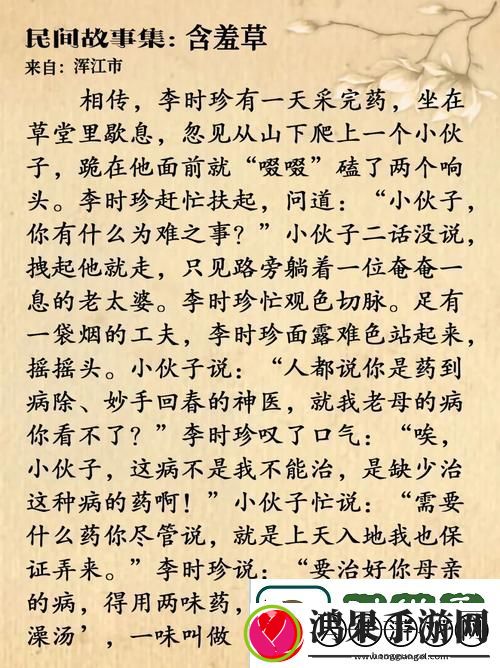 民间故事集：含羞草
来自：浑江市
相传，李时珍有一天采完药，坐在
草堂里歇息，忽见从山下爬上一个小伙
子，跪在他面前就“啜啜”磕了两个响
头。李时珍赶忙扶起，问道：“小伙子，
你有什么为难之事？”小伙子二话没说，
拽起他就走，只见路旁躺着一位奄奄一
息的老太婆。李时珍忙观色切脉。足有
一袋烟的工夫，李时珍面露难色站起来，
摇摇头。小伙子说：“人都说你是药到
病除、妙手回春的神医，就我老母的病
你看不了？”李时珍叹了口气：“唉，
小伙子，这病不是我不能治，是缺少治
这种病的药啊！”小伙子忙说：“需要
什么药你尽管说，就是上天入地我也保
证弄来。”李时珍说：“要治好你母亲
的病，得用两味药，
澡汤’，一味叫做
鸿果手游网
www.hongguogzl.com